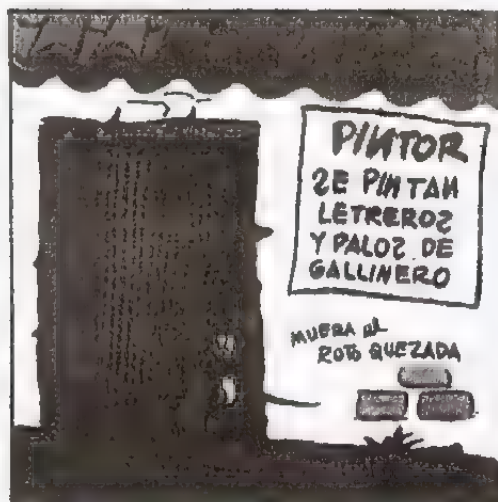 PINTOR
SE PINTAN
LETREROS
Y PALOS DE
GALLINERO
MUERA EL
ROTO QUEZADA